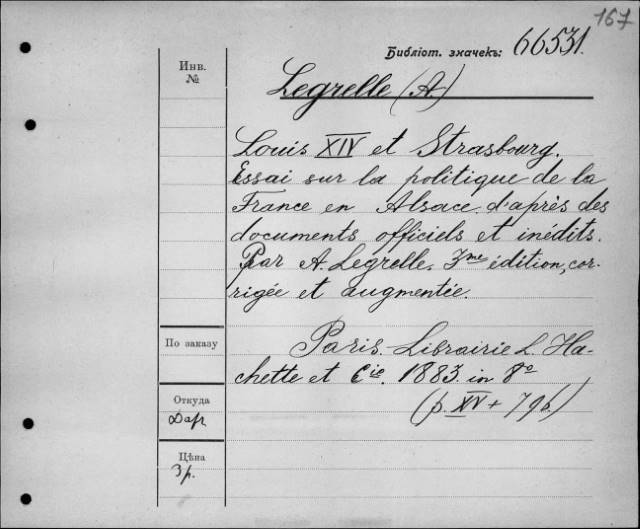 167
Библіот. значекъ: 66531.
Инв.
№
Legrelle (A)
Louis XIV et Strasbourg.
Essai sur la politique de la
France en Alsace d'après des
documents officiels et inédits.
Par A. Legrelle. 3me édition, cor-
rigée et augmentée.
По заказу
Paris. Librairie L. Ha-
chette et Cie. 1883. in 8o
(p. XV +
Откуда
Дар
Цѣна
3 р.